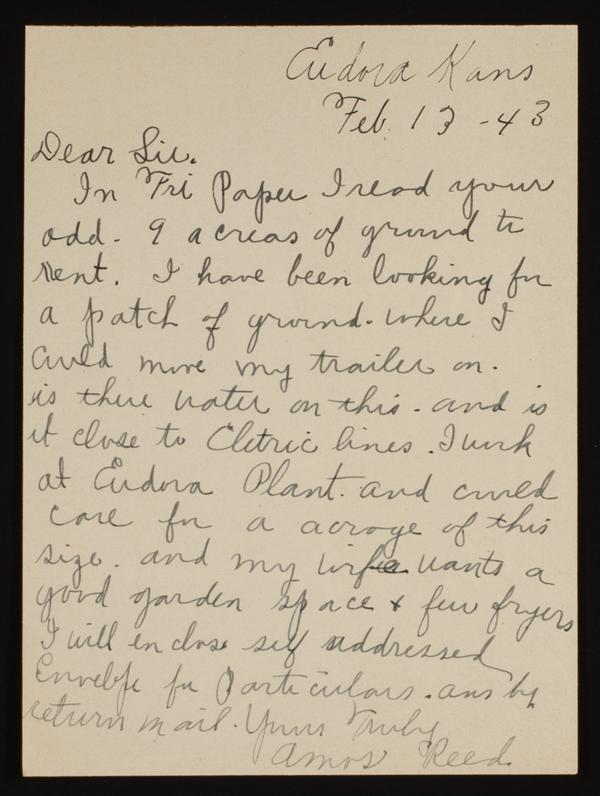 Eudora Kans
Feb. 13 - 43
Dear Sir.
In Fri Paper I read your
add - 9 acreas of ground to
Rent. I have been looking for
a patch of ground. where I
could move my trailer on.
is there water on this. and is
it close to Eletric lines. I work
at Eudora Plant. and could
care for a acroge of this
size. and my wife wants a
good garden space & few fryers
I will enclose self addressed
Envelope for Particulars. ans by
return mail. Yours Truly
Amos Reed.